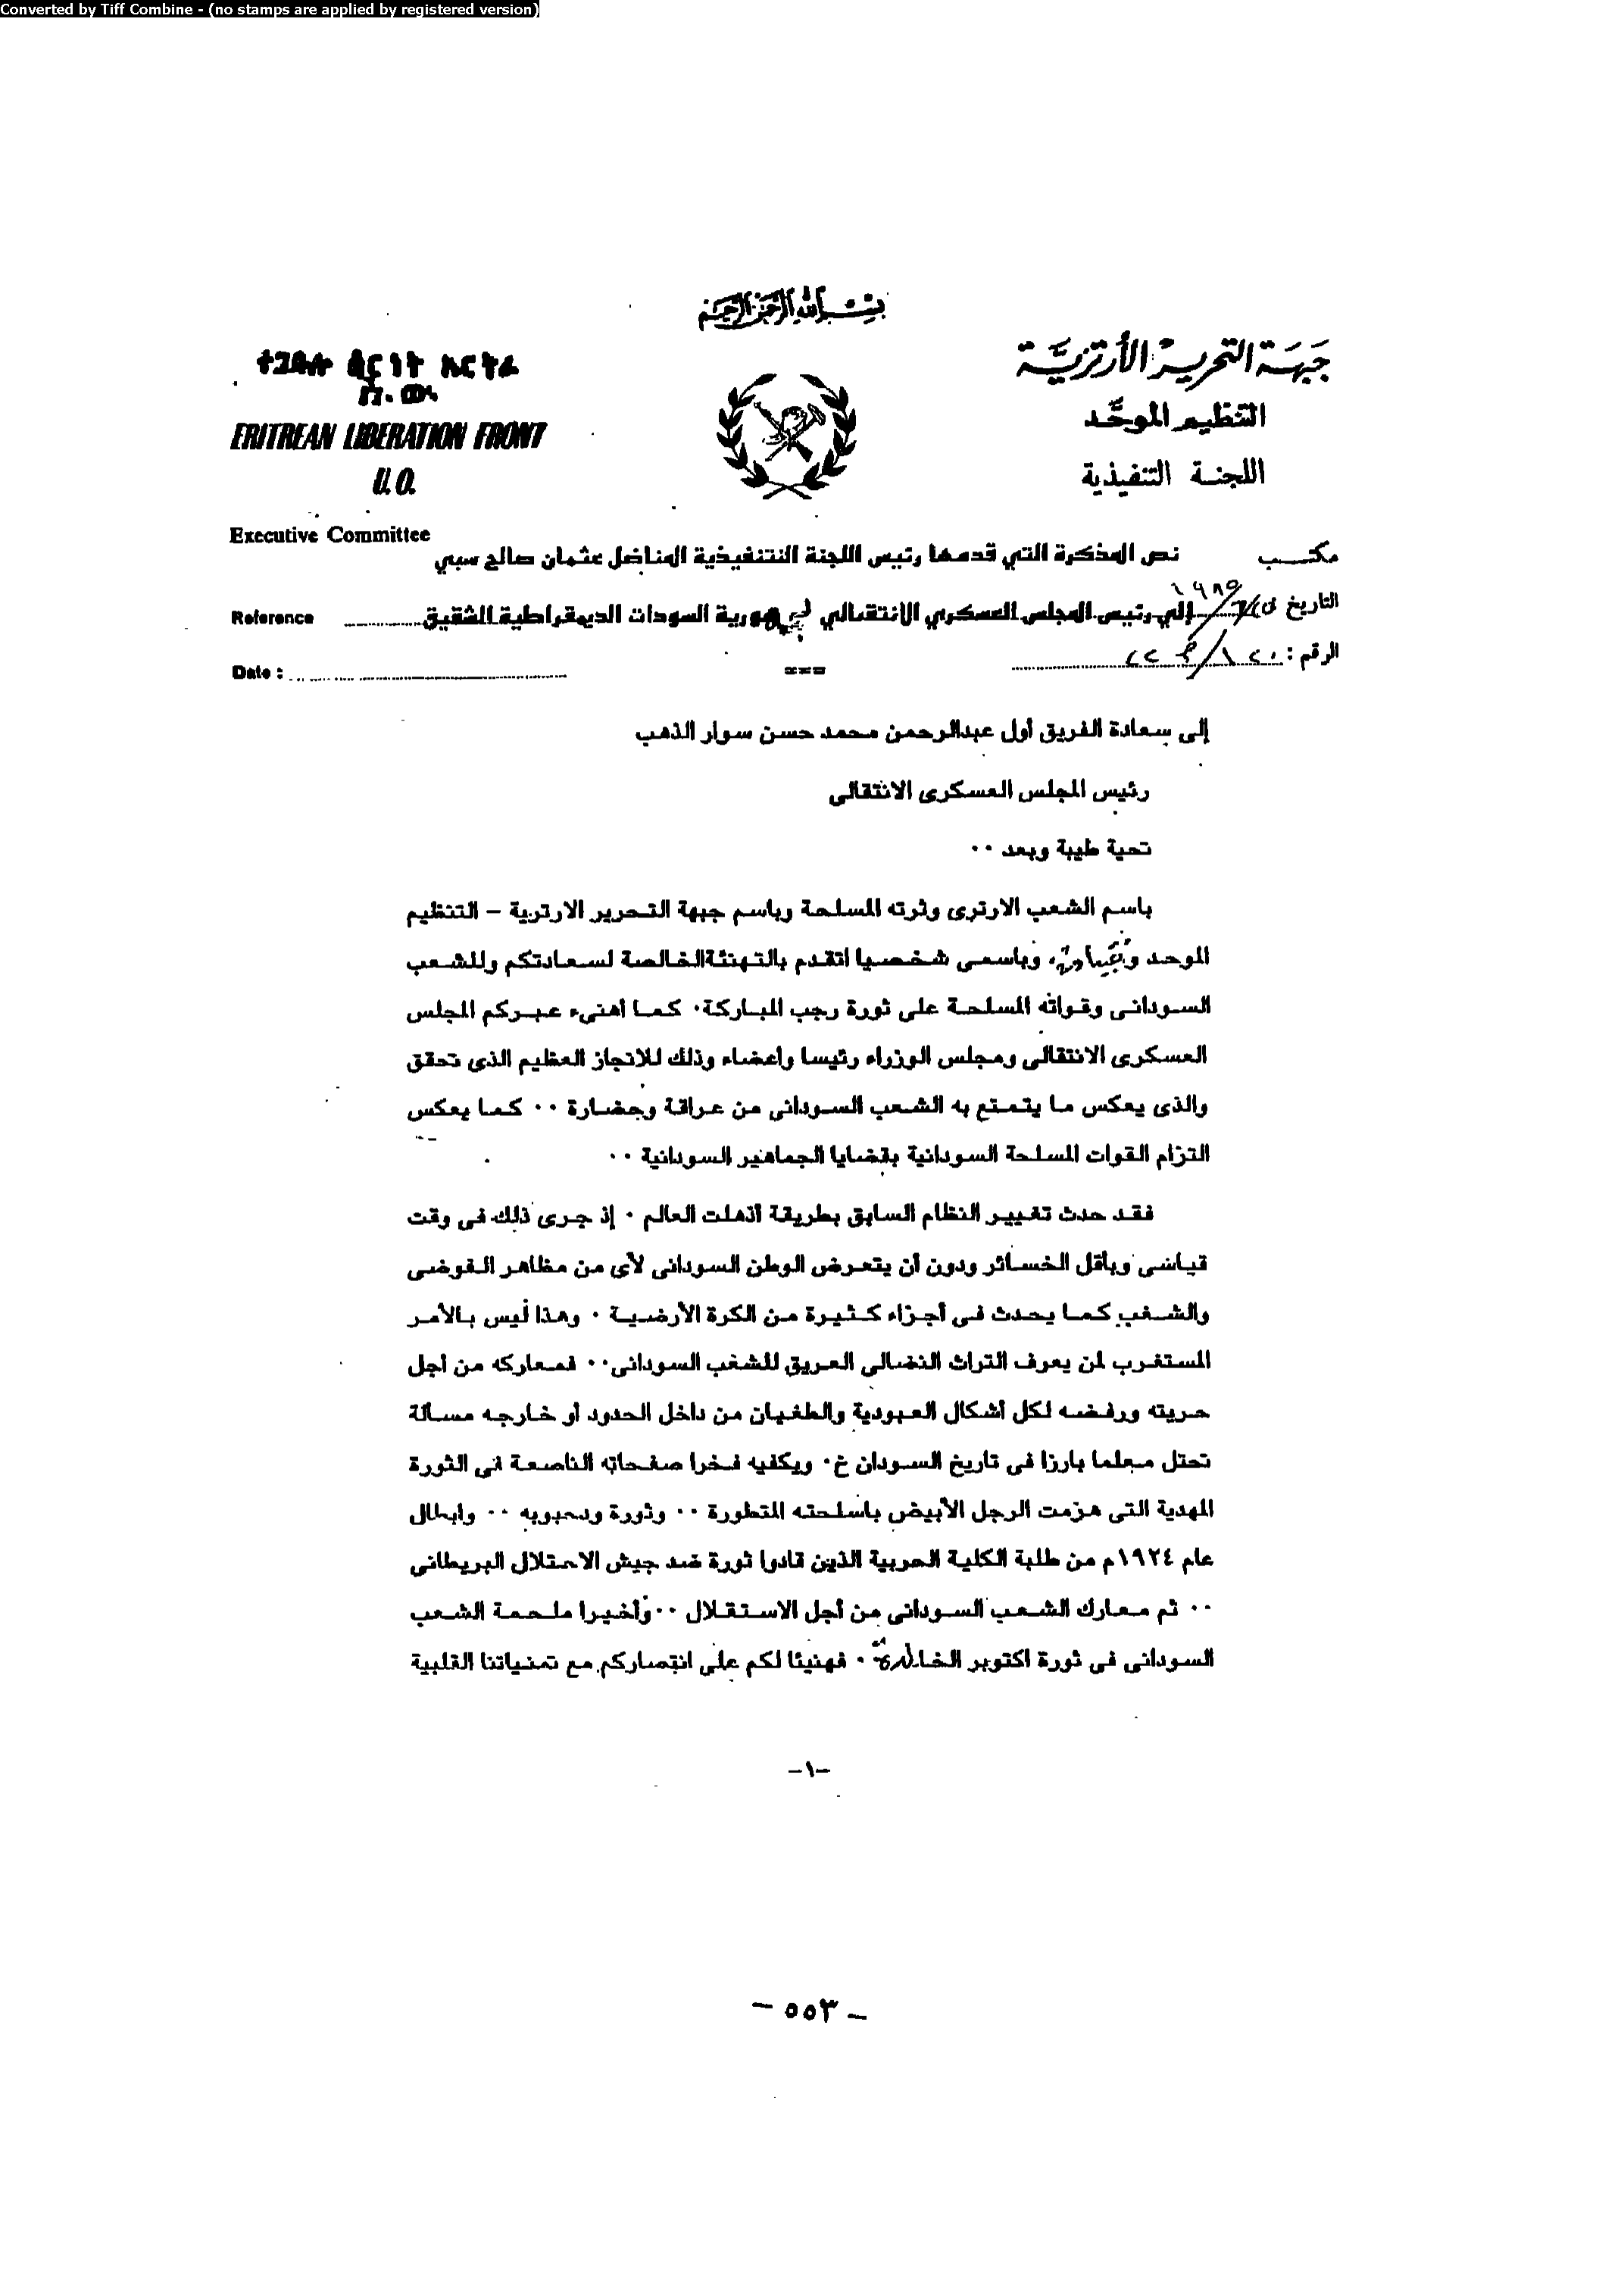 Converted by Tiff Combine - (no stamps are applied by registered version)
بسم الله الرحمن الرحيم
جبهة التحرير الأرترية
التنظيم الموحد
اللجنة التنفيذية
ተጋድሎ ሓርነት ኤርትራ
ERITREAN LIBERATION FRONT
U.O.
Executive Committee
مكتب
نص المذكرة التي قدمها رئيس اللجنة التنفيذية المناضل عثمان صالح سبي
التاريخ
إلي رئيس المجلس العسكري الانتقالي لجمهورية السودات الديمقراطية الشقيق
Reference
الرقم :
Date :
===
إلى سعادة الفريق أول عبدالرحمن محمد حسن سوار الذهب
رئيس المجلس العسكرى الانتقالى
تحية طيبة وبعد ٠٠
باسم الشعب الارترى وثرته المسلحة وباسم جبهة التحرير الارترية – التنظيم
الموحد وباسمى شخصيا اتقدم بالتهنئة الخالصة لسعادتكم وللشعب
السودانى وقواته المسلحة على ثورة رجب المباركة٠ كما أهنىء عبركم المجلس
العسكرى الانتقالى ومجلس الوزراء رئيسا وأعضاء وذلك للانجاز العظيم الذى تحقق
والذى يعكس ما يتمتع به الشعب السودانى من عراقة وحضارة ٠٠ كما يعكس
التزام القوات المسلحة السودانية بقضايا الجماهير السودانية ٠٠
فقد حدث تغيير النظام السابق بطريقة أذهلت العالم ٠ إذ جرى ذلك فى وقت
قياسى وبأقل الخسائر ودون أن يتعرض الوطن السودانى لأى من مظاهر الفوضى
والشغب كما يحدث فى أجزاء كثيرة من الكرة الأرضية ٠ وهذا ليس بالأمر
المستغرب لمن يعرف التراث النضالى العريق للشغب السودانى٠٠ فمعاركه من أجل
حريته ورفضه لكل أشكال العبودية والطغيان من داخل الحدود أو خارجه مسألة
تحتل معلما بارزا فى تاريخ السودان غ٠ ويكفيه فخرا صفحاته الناصعة فى الثورة
المهدية التى هزمت الرجل الأبيض باسلحته المتطورة ٠٠ وثورة ودحبوبه ٠٠ وابطال
عام ١٩٢٤م من طلبة الكلية الحربية الذين قادوا ثورة ضد جيش الاحتلال البريطانى
٠٠ ثم معارك الشعب السودانى من أجل الاستقلال ٠٠وأخيرا ملحمة الشعب
السودانى فى ثورة اكتوبر الخالدة ٠ فهنيئا لكم على انتصاركم مع تمنياتنا القلبية
–١–
– ٥٥٣ –